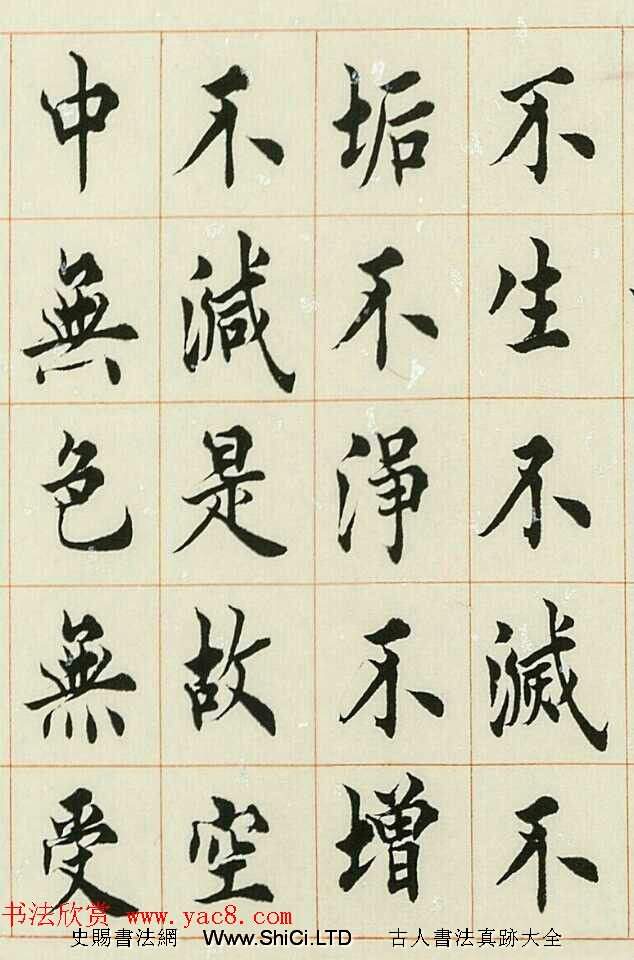 不生不滅不
垢不淨不增
不減是故空
中無色無受
书法欣赏 www.yac8.com
史賜書法網 Www.ShiCi.LTD 古人書法真跡大全